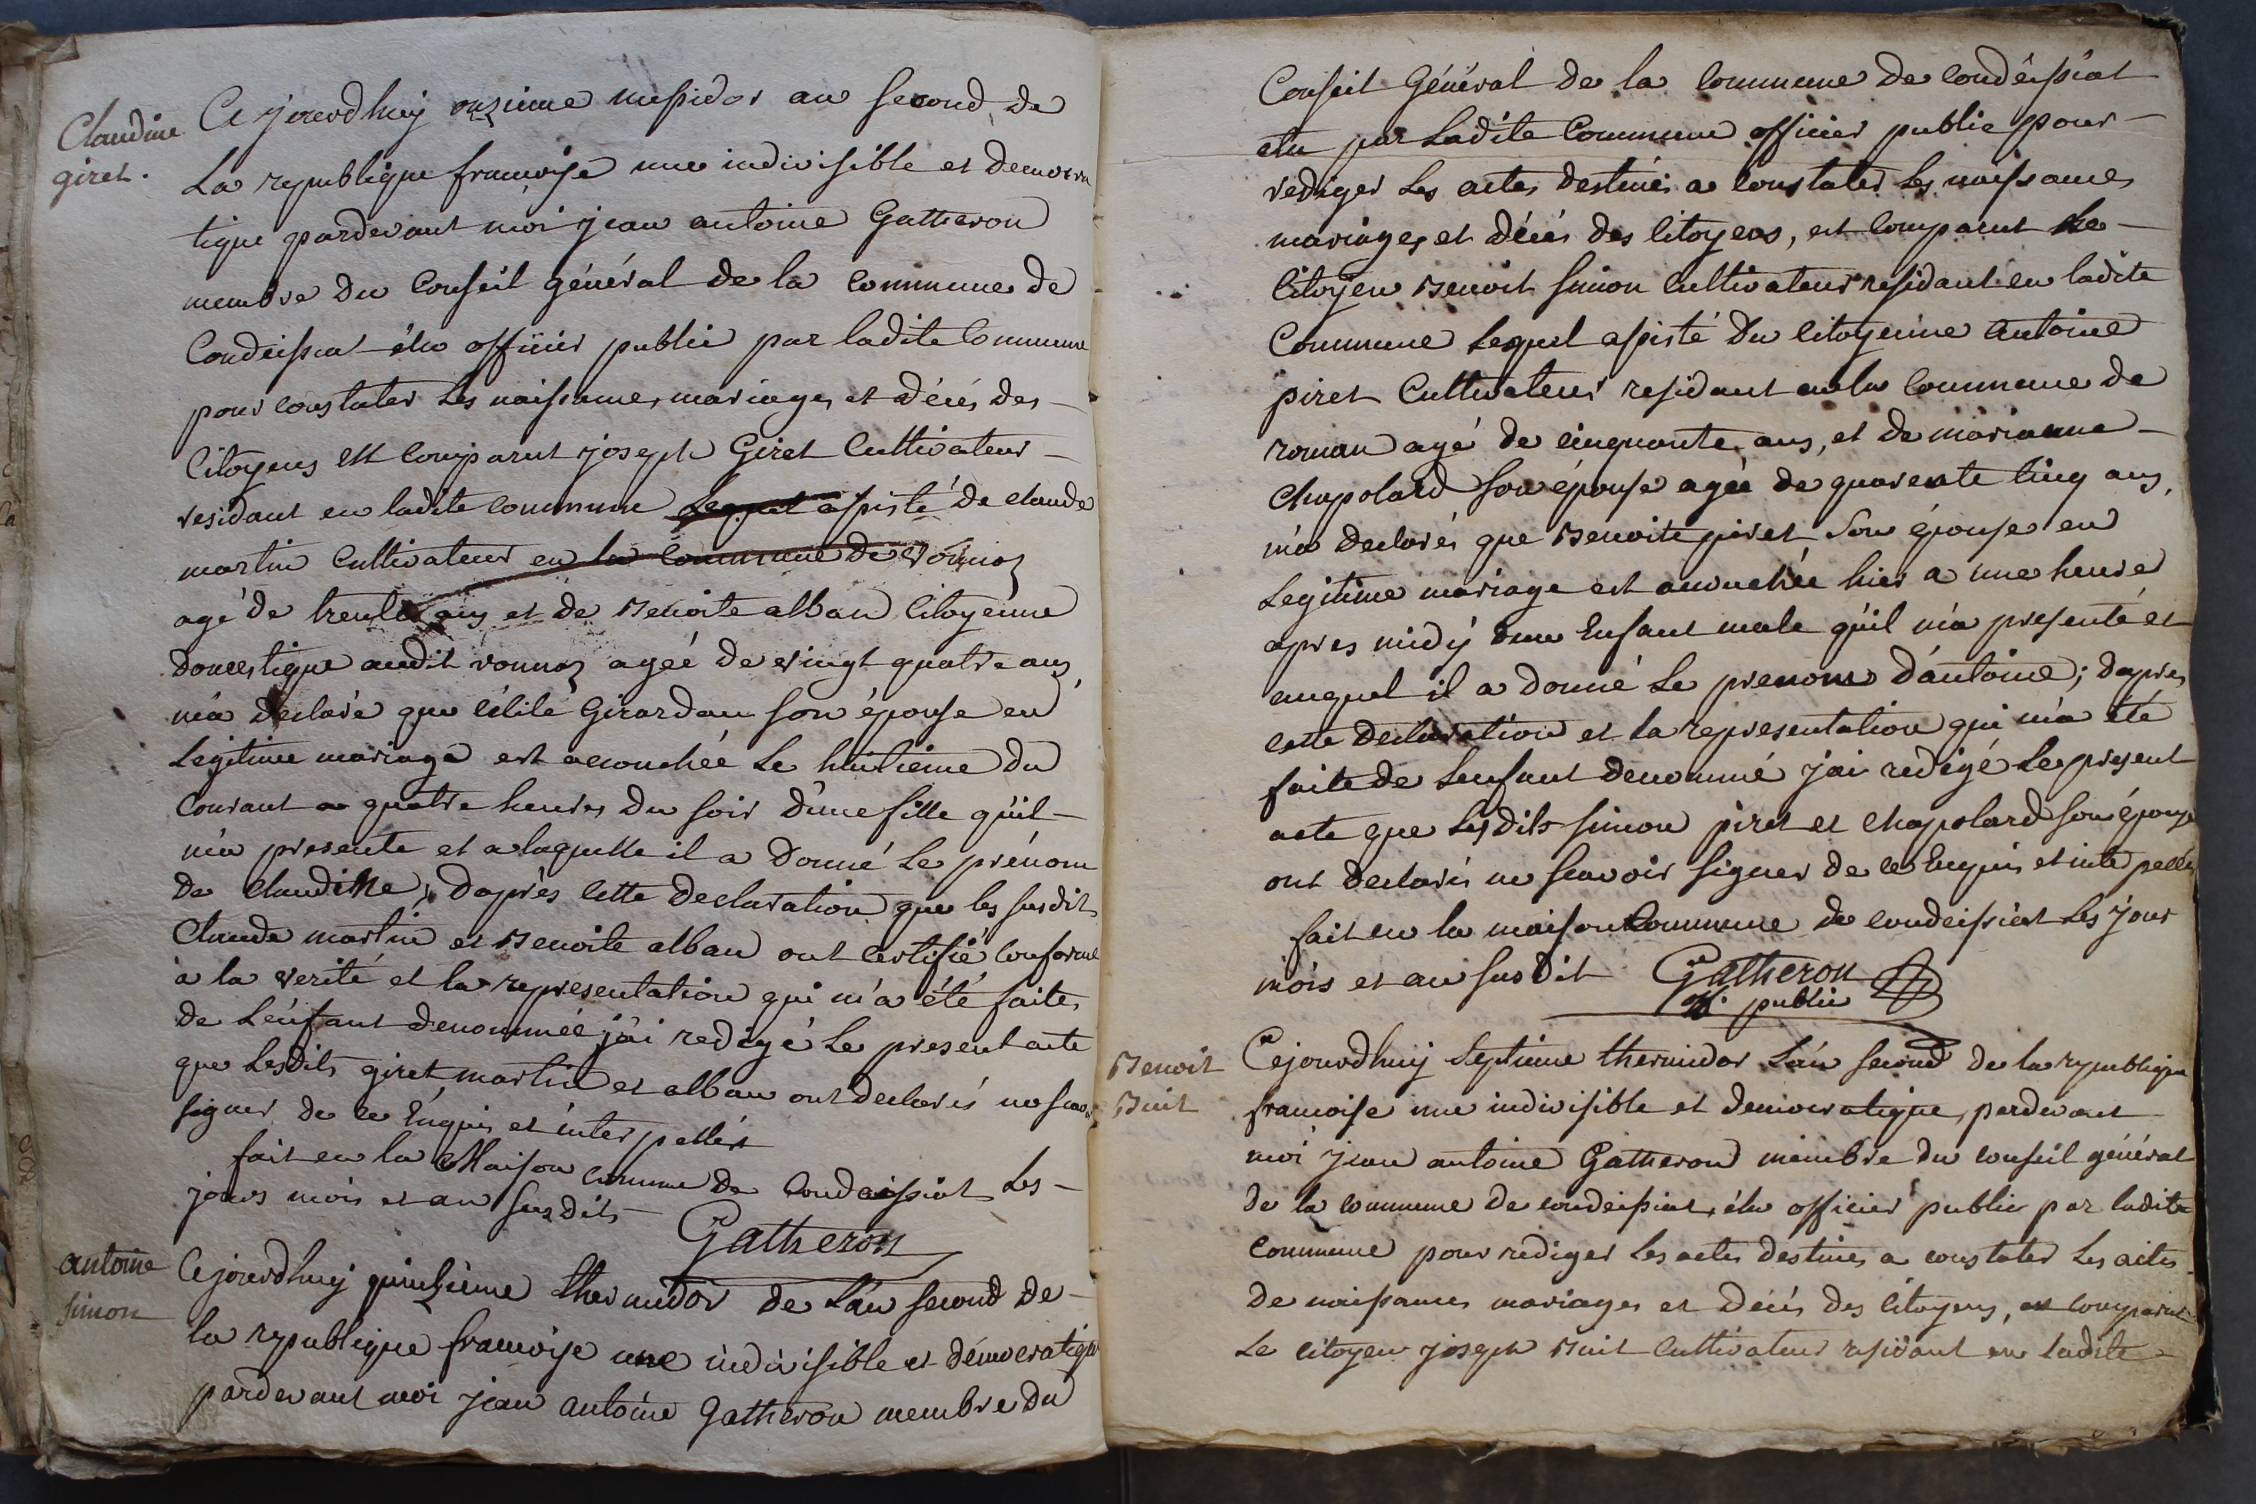 Claudine
giret.
Ce jourdhuy onzieme messidor an second de
La republique francoise une indivisible et democra
tique pardevant moi jean antoine Gatheron
membre du Conseil général de la commune de
Condeissiat élu officier public par ladite Commune
pour constater les naissances, mariages et décés des
Citoyens est comparut joseph Giret Cultivateur
residant en ladite commune Lequel assisté de claude
martin Cultivateur en la commune de vonnoz
agé de trente ans et de Benoite alban Citoyenne
domestique audit vonnoz agée de vingt quatre ans,
m'a déclaré que Célilé Girardan son épouse en
Legitime mariage est acouchée Le huitieme du
Courant a quatre heures du soir d'une fille qu'il
m'a presente et a laquelle il a donné Le prénom
de Claudine, d'aprés cette declaration que les susdits
Claude martin et Benoite alban ont Certifié Conforme
à la verité et la representation qui m'a été faite,
de L'enfant denommée j'ai redigé Le present acte
que Lesdits giret, martin et alban ont declarés ne scavoir
signer de ce Enquis et interpellés
fait en la Maison commune de Condeissiat Les
jours mois et an susdits
Gatheron
antoine
simon
Ce jourdhuy quinzieme thermidor de L'an second de
la republique francoise une indivisible et démocratique
pardevant moi jean antoine Gatheron membre du
Conseil Général de la Commune de Condeissiat
elu par Ladite Commune officier public pour
rediger Les actes destinés a Constater Les naissances
mariages et décés des Citoyens, est Comparut Le
Citoyen Benoit simon Cultivateur residant en ladite
Commune Lequel assisté du Citoyenne antoine
piret Cultivateur residant en la Commune de
roman agé de cinquante ans, et de marianne
Chapolard son épouse agée de quarente Cinq ans,
m'a declarés que Benoite piret Son épouse en
Legitime mariage est acouchée hier a une heure
apres midy d'un Enfant male qu'il m'a presenté et
auquel il a donné Le prenom d'antoine; d'apres
cette declaration et la representation qui m'a été
faite de Lenfant denommé j'ai redigé Le present
acte que Lesdits simon piret et Chapolard son épouse
ont declarés ne scavoir signer de ce Enquis et interpellés
fait en la maison Commune de condeissiat Les jour
mois et an susdit Gatheron
off. public
Benoit
Buit
Ce jourdhuy septieme thermidor L'an second de la republique
francoise une indivisible et democratique, pardevant
moi jean antoine Gatheron membre du conseil général
de la commune de condeissiat, élu officier public par ladite
commune pour rediger Les actes destinés a constater Les actes
de naissances mariages et décés des Citoyens, est comparut
Le citoyen joseph Buit Cultivateur residant en Ladite